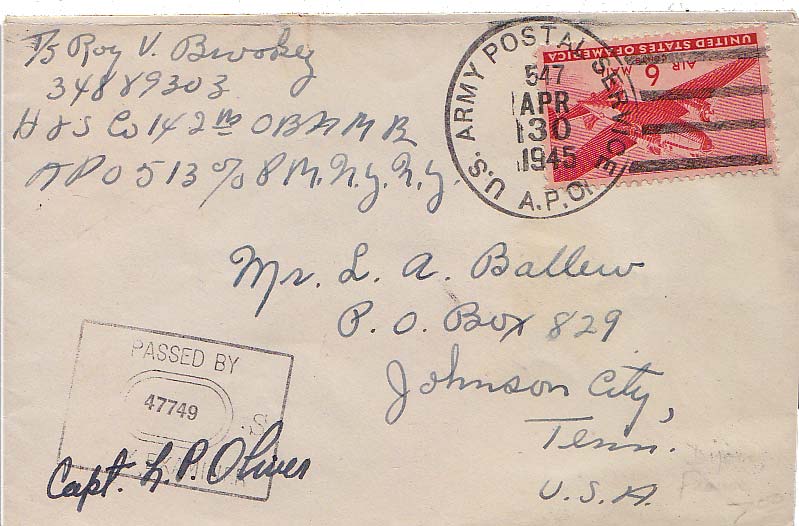 T/5 Roy V. Brookey
34889303
H & S Co 142nd OBAMBn
APO 513 % P.M. N.Y. N.Y.
U.S. ARMY POSTAL SERVICE
547
APR
30
1945
A.P.O.
UNITED STATES OF AMERICA
AIR MAIL
6
Mr. L. A. Ballew
P. O. Box 829
Johnson City,
Tenn.
U.S.A.
PASSED BY
47749
Capt. L. P. Oliver